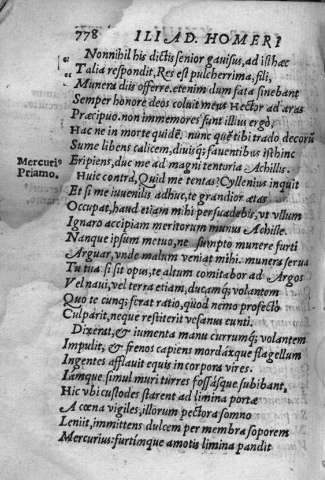 778 ILIAD. HOMERI
Nonnihil his dictis senior gavisus, ad isthæc
Talia respondit, Res est pulcherrima, fili,
Munera diis offerre. etenim dum fata sinebant
Semper honore deos coluit meus Hector ad aras
Præcipuo. non immemores sunt illius ergò,
Hac ne in morte quidē. nunc quē tibi trado decorū
Sume libens calicem, diuisq; fauentibus isthinc
Eripiens, duc me ad magni tentoria Achillis.
Mercuri⁹
Priamo.
Huic contrà, Quid me tentas? Cyllenius inquit
Et si me iuuenilis adhuc, te grandior ætas
Occupat, haud etiam mihi persuadebis, vt vllum
Ignaro accipiam meritorum munus Achille.
Nanque ipsum metuo, ne sumpto munere furti
Arguar, vnde malum veniat mihi. munera serua
Tu tua si sit opus, te altum comitabor ad Argos
Vel naui, vel terra etiam, ducamq; volantem
Quo te cunq; ferat ratio, quòd nemo profectò
Culparit, neque restiterit vesanus eunti.
Dixerat, & iumenta manu currumq; volantem
Impulit, & frenos capiens mordáxque flagellum
Ingentes afflauit equis in corpora vires.
Iamque simul muri turres fossásque subibant,
Hic vbi custodes starent ad limina portæ
A cœna vigiles, illorum pectora somno
Leniit, immittens dulcem per membra soporem
Mercurius: furtímque amotis limina pandit